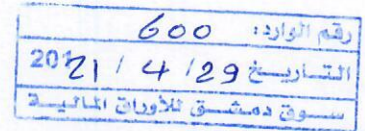 رقم الوارد: 600
التاريخ 29 / 4 / 2021
سوق دمشق للأوراق المالية